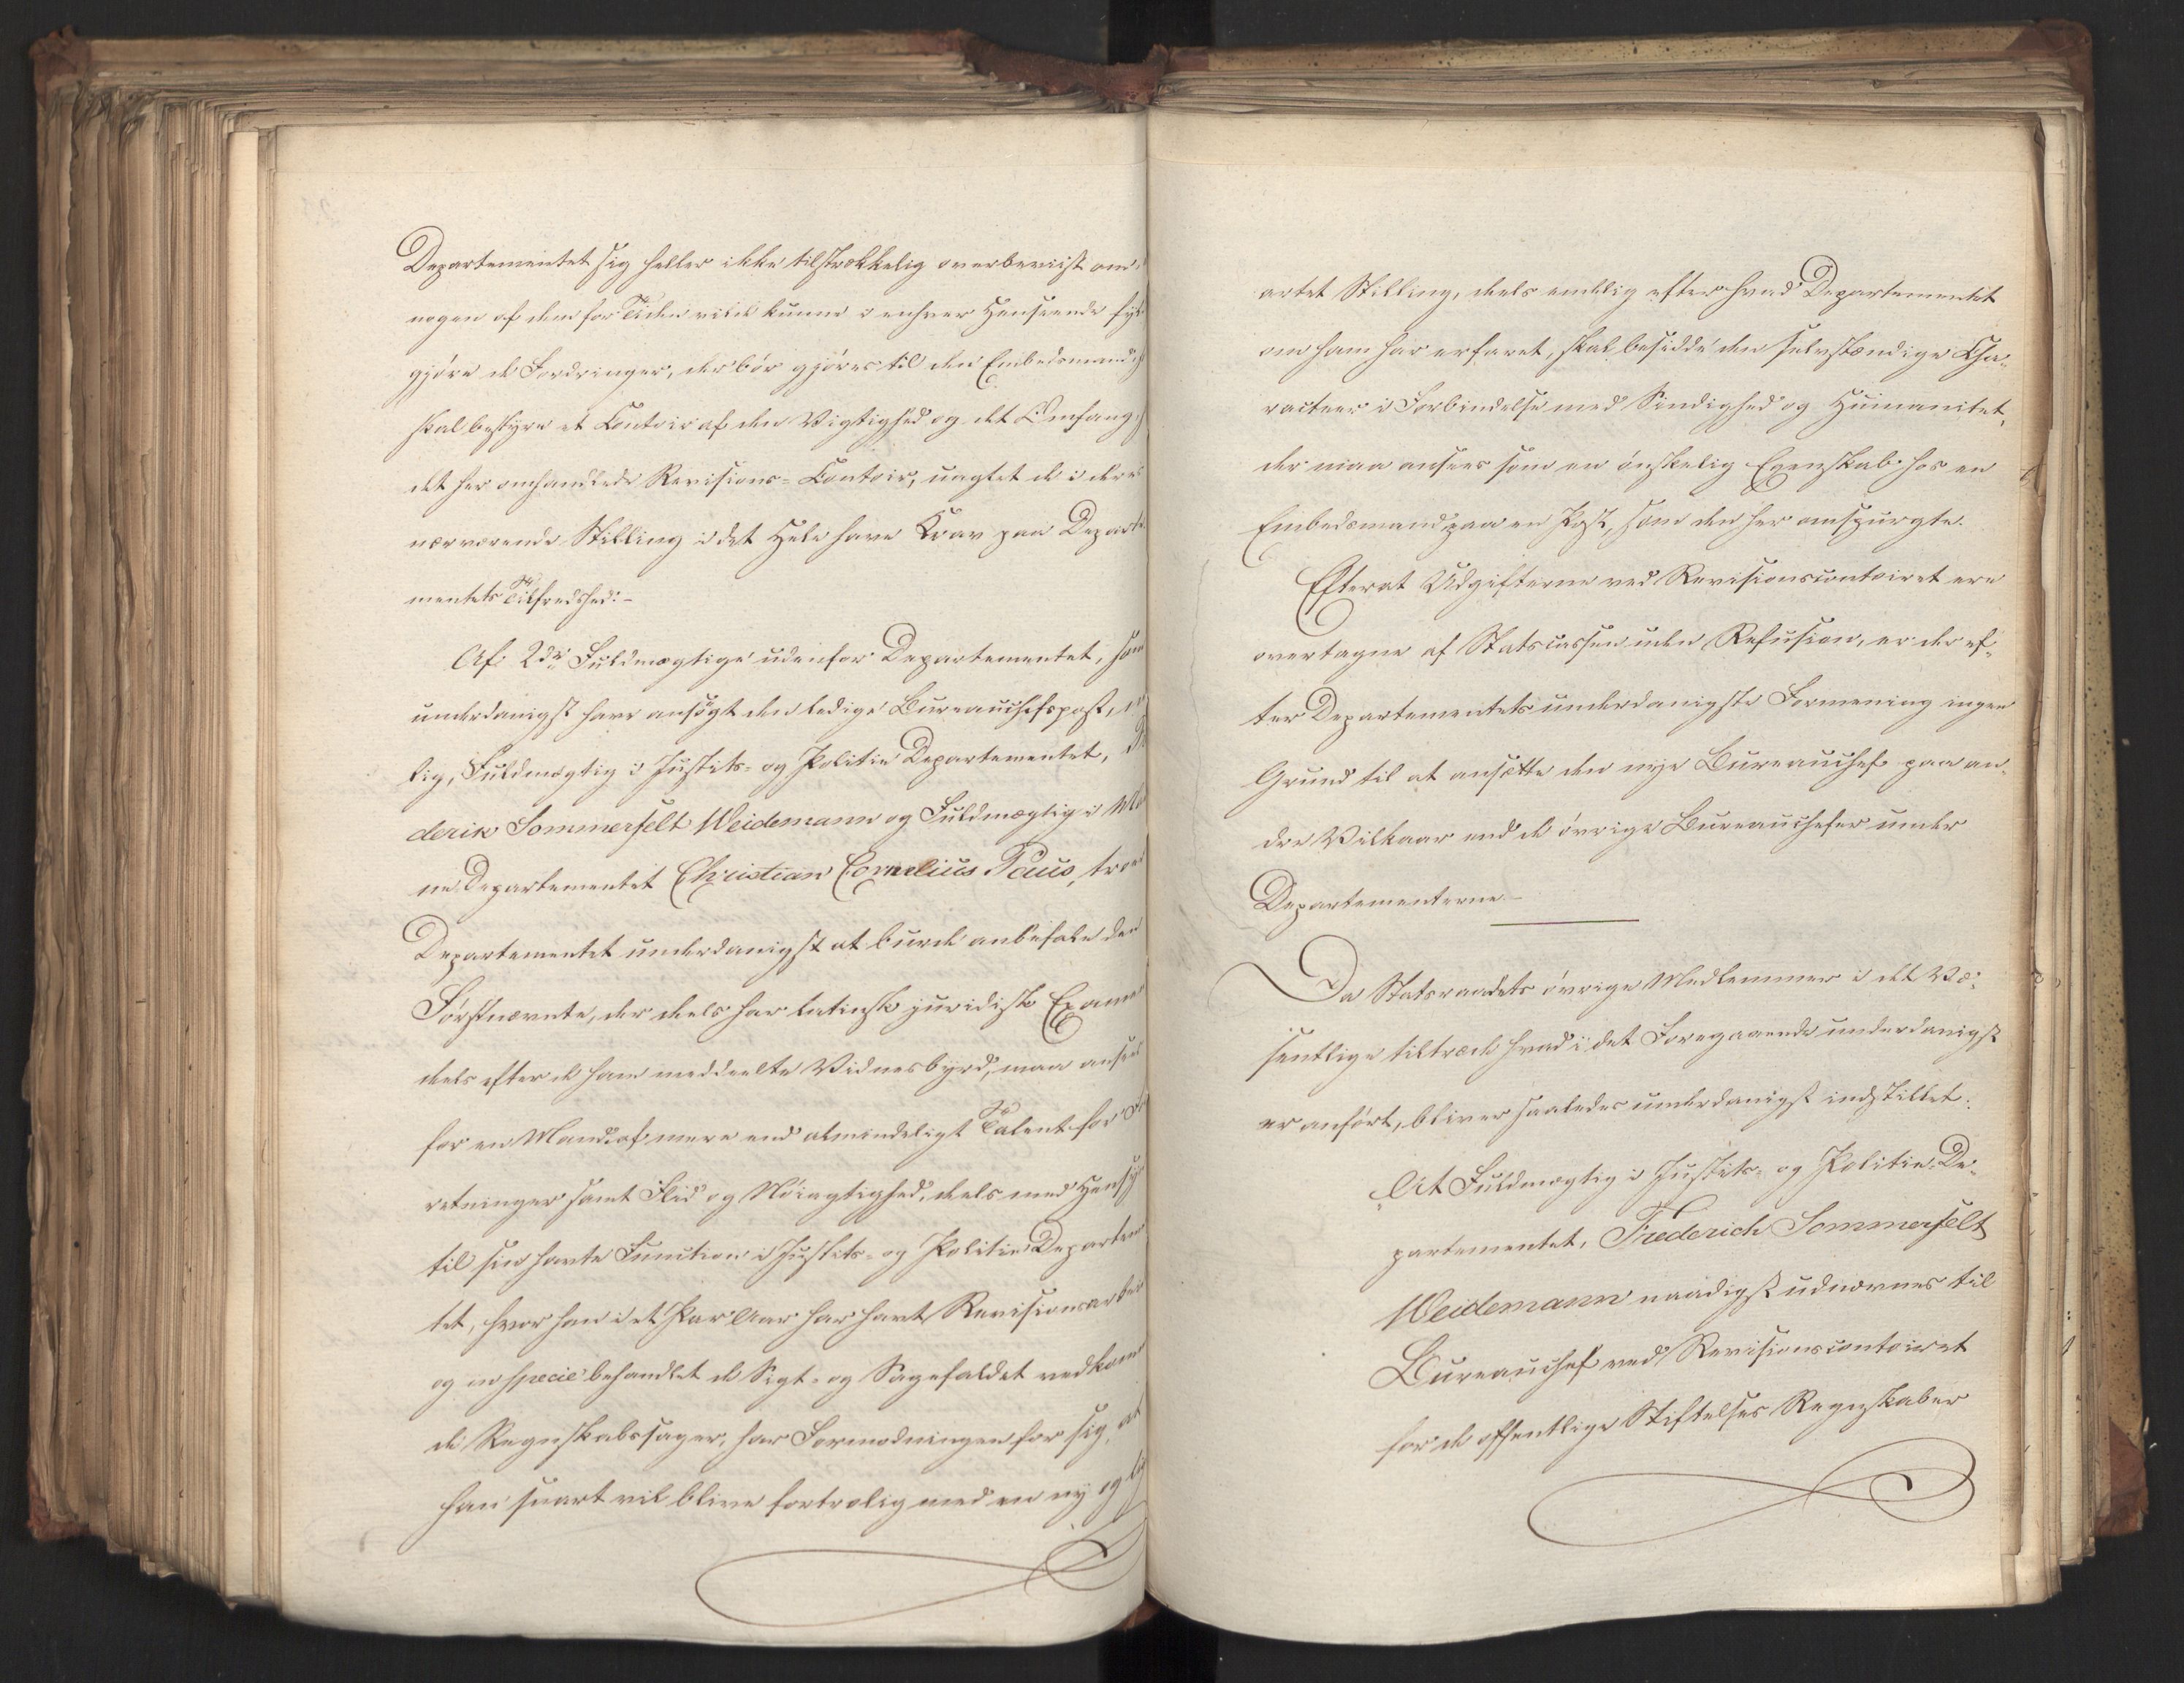 Departementet sig heller ikke tilstrækkelig overbeviist om
nogen af dem for Tiden vilde kunne i enhver Henseende fyl
gjøre de Fordringer, der bør gjøres til den Embedsmand,
skal bestyre et Contoir af den Vigtighed og det Omfang,
det her omhandlede Revisions-Contoir, uagtet de i deres
nærværende Stilling i det Hele have Krav paa Departe
mentets Tilfredshed.-
Af 2de Fuldmægtige udenfor Departementet, som
underdanigst have ansøgt den ledige Bureauchefspost,
lig, Fuldmægtig i Justits- og Politie Departementet,
derik Sommerfelt Weidemann og Fuldmægtig i Ma
ne Departementet Christian Cornelius Paus, troer
Departementet underdanigst at burde anbefale den
Førstnævnte, der deels har latinsk juridisk Examen
deels efter de ham meddeelte Vidnesbyrd, maa ansees
for en Mand af mere end almindeligt Talent for For
retninger samt Flid og Nøiagtighed, deels med Hensyn
til sin havte Function i Justits- og Politie Departemen
tet, hvor han i et Par Aar har havt Revisionsarbei
og in specie behandlet de Sigt- og Sagefaldet vedkom
de Regnskabssager, har Formodningen for sig, at
han snart vil blive fortrolig med en ny og lig
artet Stilling, deels endelig efter hvad Departementet
om ham har erfaret, skal besidde den selvstændige Cha-
racteer i Forbindelse med Sindighed og Humanitet,
der maa ansees som en ønskelig Egenskab hos en
Embedsmand paa en Post, som den her omspurgte.
Efterat Udgifterne ved Revisionscontoiret ere
overtagne af Statscassen uden Refusion, er der ef-
ter Departementets underdanigste Formening ingen
Grund til at ansætte den nye Bureauchef paa an-
dre Vilkaar end de øvrige Bureauchefer under
Departementerne.-
Da Statsraadets øvrige Medlemmer i det Væ-
sentlige tiltræde hvad i det Foregaaende underdanigst
er anført, bliver saaledes underdanigst indstillet:
At Fuldmægtig i Justits- og Politie De-
partementet, Frederich Sommerfelt
Weidemann naadigst udnævnes til
Bureauchef ved Revisionscontoiret
for de offentlige Stiftelses Regnskaber